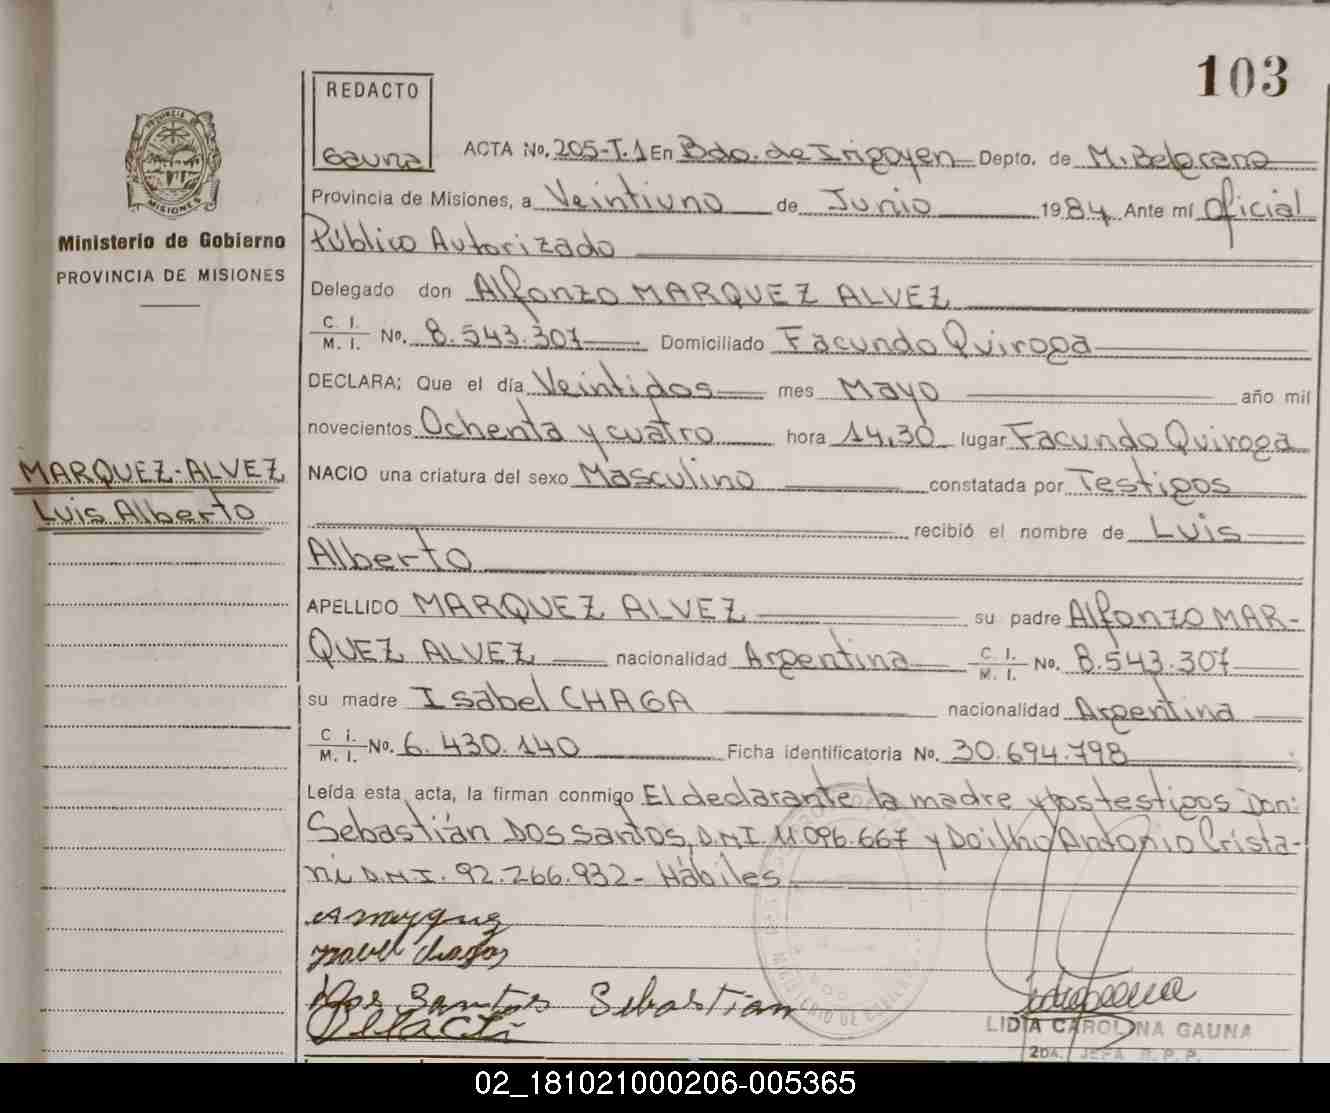 103
REDACTO
Gauna
ACTA No. 205-T.1 En Bdo. de Irigoyen Depto. de M. Belgrano
Provincia de Misiones, a Veintiuno de Junio 1984 Ante mí Oficial
Público Autorizado
PROVINCIA DE
MISIONES
Ministerio de Gobierno
PROVINCIA DE MISIONES
Delegado don Alfonzo MARQUEZ ALVEZ
C. I.
M. I. No. 8.543.307 Domiciliado Facundo Quiroga
DECLARA: Que el día Veintidos mes Mayo año mil
novecientos Ochenta y cuatro hora 14,30 lugar Facundo Quiroga
MARQUEZ-ALVEZ
Luis Alberto
NACIO una criatura del sexo Masculino constatada por Testigos
recibió el nombre de Luis
Alberto
APELLIDO MARQUEZ ALVEZ su padre Alfonzo MAR-
QUEZ ALVEZ nacionalidad Argentina C. I. M. I. No. 8.543.307
su madre Isabel CHAGA nacionalidad Argentina
C. I. M. I. No. 6.430.140 Ficha identificatoria No. 30.694.798
Leída esta acta, la firman conmigo El declarante la madre y los testigos Don:
Sebastián Dos Santos, D.N.I. 11.096.667 y Doilho Antonio Crista-
ni D.N.I. 92.266.932- Hábiles
Dos Santos Sebastian
LIDIA CAROLINA GAUNA
2DA. JEFA R. P. P.
02_181021000206-005365